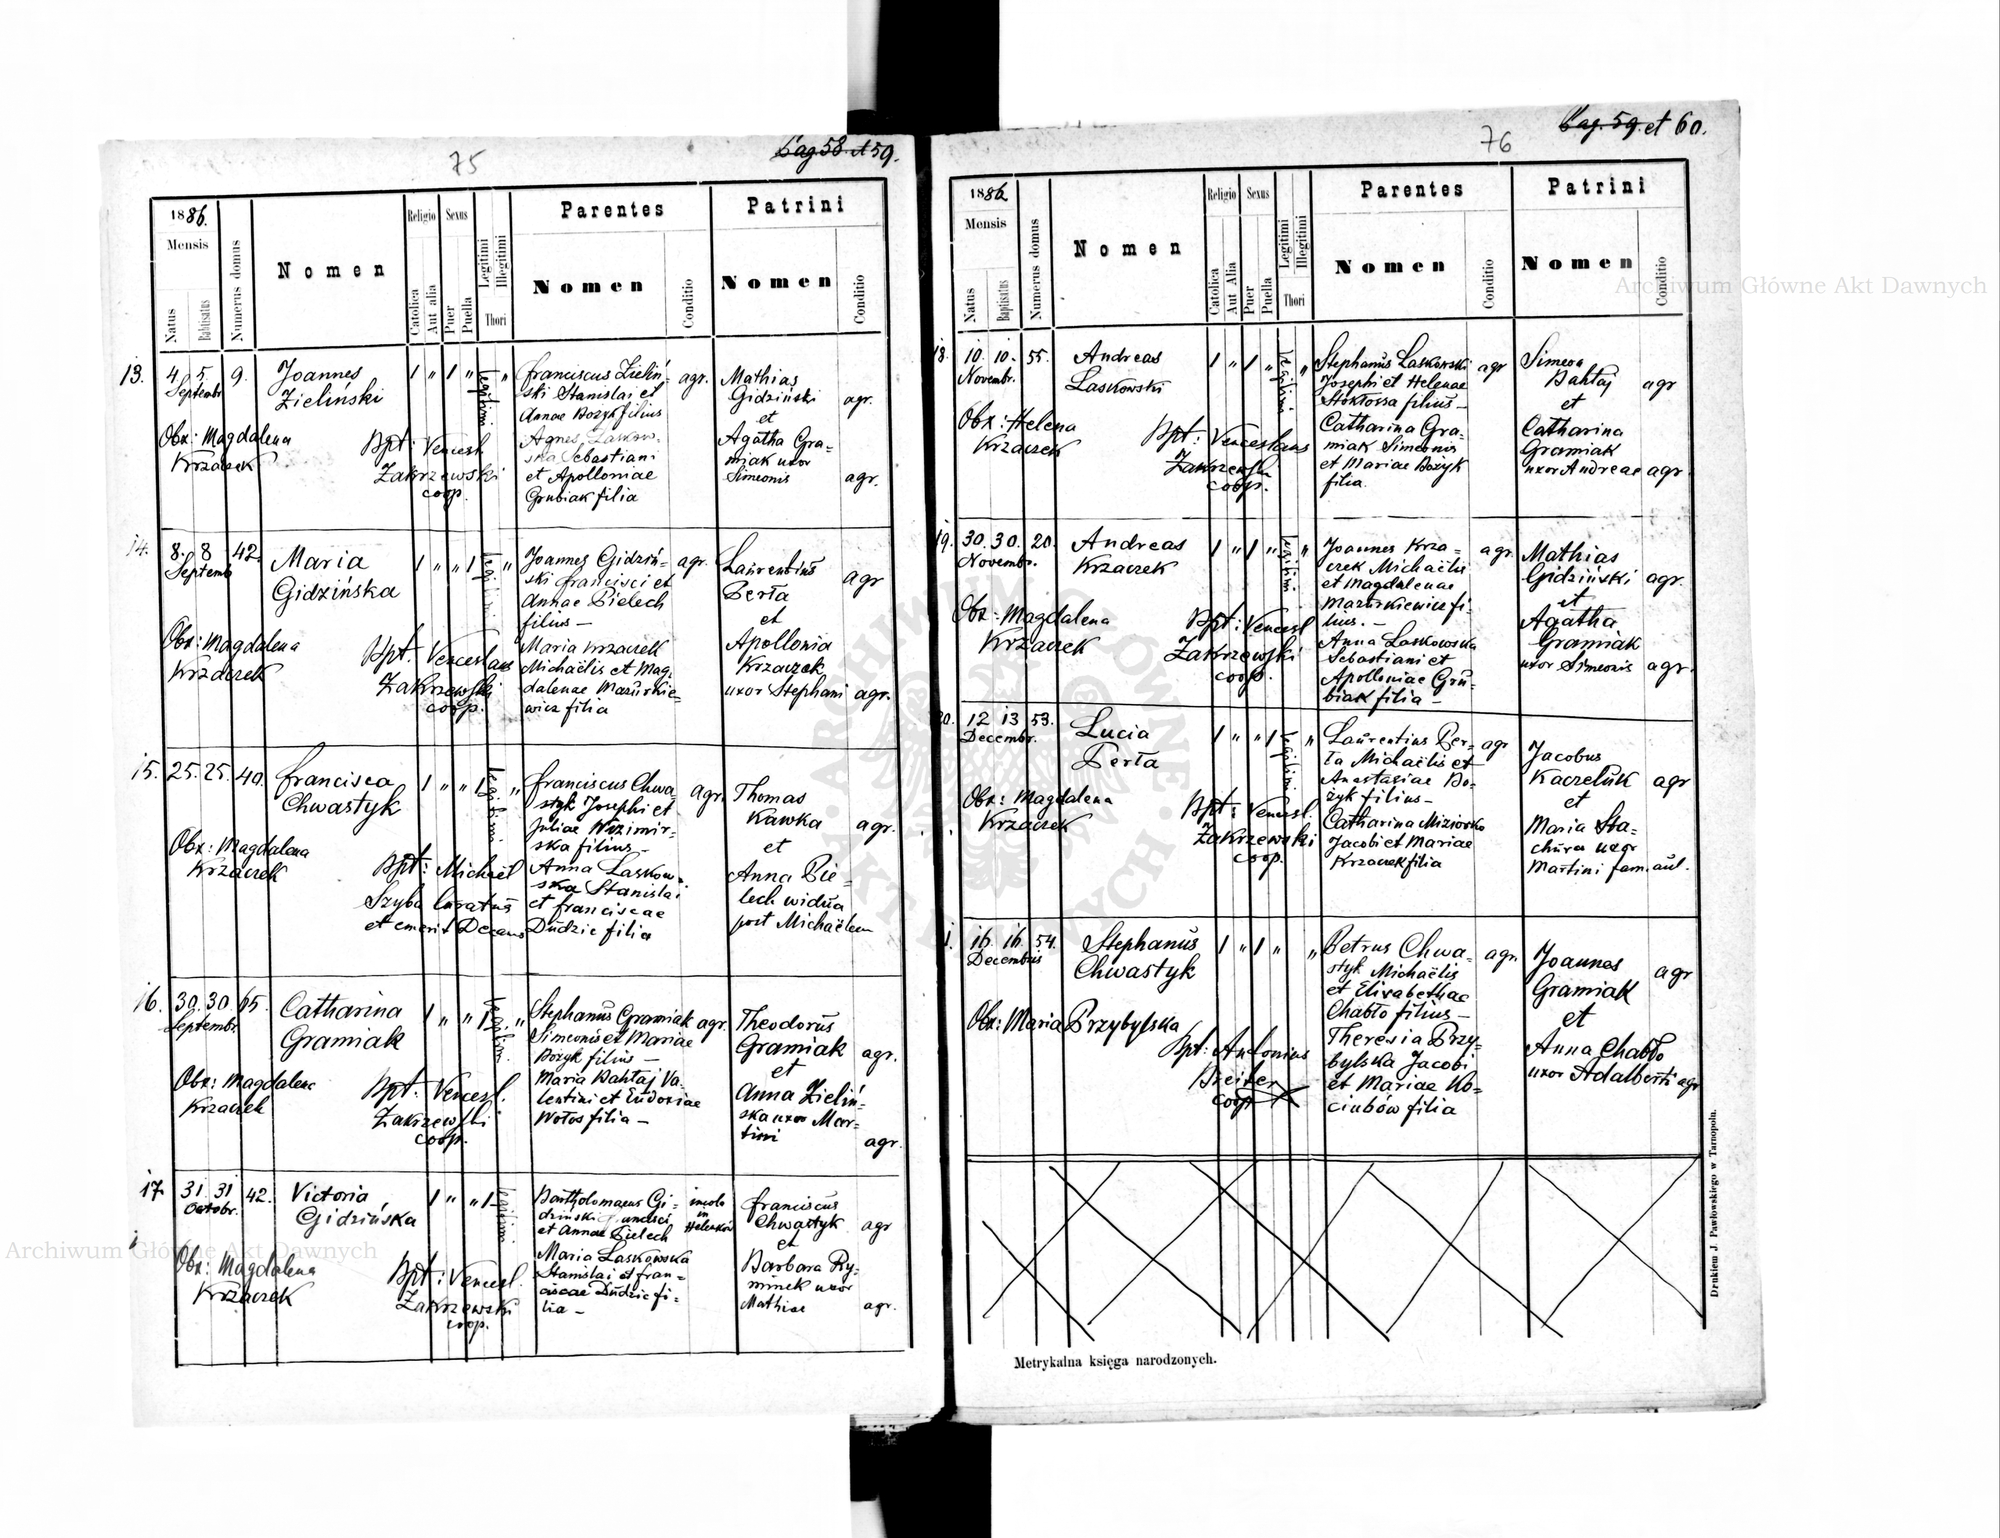 Pag 58 et 59.
75
1886.
Mensis
Natus
Babtisatus
Numerus domus
Nomen
Religio
Catolica
Aut alia
Sexus
Puer
Puella
Legitimi
Illegitimi
Thori
Parentes
Nomen
Conditio
Patrini
Nomen
Conditio
13. 4 5 9.
Septembr
Joannes
Zieliński
1 " 1 " Legitimi "
Franciscus Zieliń-
ski Stanislai et
Annae Bozyk filius
Agnes Laskow-
ska Sebastiani
et Apolloniae
Grubiak filia
agr.
Mathias
Gidziński
et
Agatha Gra-
miak uxor
Simeonis
agr.
agr.
Obx: Magdalena
Krzaczek
Bpt: Vencesl
Zakrzewski
coop.
14. 8. 8 42.
Septemb
Maria
Gidzińska
1 " " 1 Legitimi "
Joannes Gidziń-
ski Francisci et
Annae Bielech
filius —
Maria Krzaczek
Michaëlis et Mag-
dalenae Mazurkie-
wicz filia
agr.
Laurentius
Perła
et
Apollonia
Krzaczek
uxor Stephani
agr
agr.
Obx: Magdalena
Krzaczek
Bpt: Venceslaus
Zakrzewski
coop.
15. 25. 25. 40.
Francisca
Chwastyk
1 " " 1 Legitimi "
Franciscus Chwa-
styk Josephi et
Juliae Wizimir-
ska filius —
Anna Laskow-
ska Stanislai
et Franciscae
Dudzic filia
agr.
Thomas
Kawka
et
Anna Bie-
lech widua
post Michaëlem
agr.
Obx: Magdalena
Krzaczek
Bpt: Michaël
Szyba Curatus
et emerit Decanus
16. 30. 30 65.
Septembr.
Catharina
Gramiak
1 " " 1 Legitim. "
Stephanus Gramiak
Simeonis et Mariae
Bozyk filius —
Maria Bahtaj Va-
lentini et Eudoxiae
Wołos filia —
agr.
Theodorus
Gramiak
et
Anna Zieliń-
ska uxor Mar-
tini
agr.
agr.
Obx: Magdalena
Krzaczek
Bpt: Vencesl.
Zakrzewski
coop.
17 31. 31 42.
Octobr.
Victoria
Gidzińska
1 " " 1 Legitimi
Bartholomaeus Gi-
dziński Francisci
et Annae Bielech
Maria Laskowska
Stanislai et Fran-
ciscae Dudzic fi-
lia —
incola
in
Helenków
Franciscus
Chwastyk
et
Barbara Ry-
minek uxor
Mathiae
agr
agr.
Obx: Magdalena
Krzaczek
Bpt: Vencesl.
Zakrzewski
coop.
Pag. 59. et 60.
76
1886
Mensis
Natus
Baptisatus
Numerus domus
Nomen
Religio
Catolica
Aut Alia
Sexus
Puer
Puella
Legitimi
Illegitimi
Thori
Parentes
Nomen
Conditio
Patrini
Nomen
Conditio
18. 10. 10. 55.
Novembr.
Andreas
Laskowski
1 " 1 " Legitimi "
Stephanus Laskowski
Josephi et Helenae
Stokłossa filius —
Catharina Gra-
miak Simeonis
et Mariae Bozyk
filia.
agr
Simeon
Bahtaj
et
Catharina
Gramiak
uxor Andreae
agr
agr.
Obx: Helena
Krzaczek
Bpt: Venceslaus
Zakrzewski
coop.
19. 30. 30. 20.
Novembr.
Andreas
Krzaczek
1 " 1 " Legitimi "
Joannes Krza-
czek Michaëlis
et Magdalenae
Mazurkiewicz fi-
lius. —
Anna Laskowska
Sebastiani et
Apolloniae Gru-
biak filia —
agr.
Mathias
Gidziński
et
Agatha
Gramiak
uxor Simeonis
agr.
agr.
Obx: Magdalena
Krzaczek
Bpt: Vencesl
Zakrzewski
coop.
20. 12 13 53.
Decembr.
Lucia
Perła
1 " " 1 Legitimi "
Laurentius Per-
ła Michaëlis et
Anastasiae Bo-
zyk filius —
Catharina Miziorko
Jacobi et Mariae
Krzaczek filia
agr
Jacobus
Kaczeluk
et
Maria Sta-
chura uxor
Martini fam. aul.
agr
Obx: Magdalena
Krzaczek
Bpt: Vencesl.
Zakrzewski
coop.
1. 16. 16. 54.
Decembris
Stephanus
Chwastyk
1 " 1 " "
Petrus Chwa-
styk Michaëlis
et Elisabethae
Chabło filius —
Theresia Przy-
bylska Jacobi
et Mariae Ko-
ciubów filia
agr.
Joannes
Gramiak
et
Anna Chabło
uxor Adalberti
agr
agr
Obx: Maria Przybylska
Bpt: Antonius
Breiter
coop
Metrykalna księga narodzonych.
Drukiem J. Pawłowskiego w Tarnopolu.
Archiwum Główne Akt Dawnych
Archiwum Główne Akt Dawnych
ARCHIWUM GŁÓWNE AKT DAWNYCH